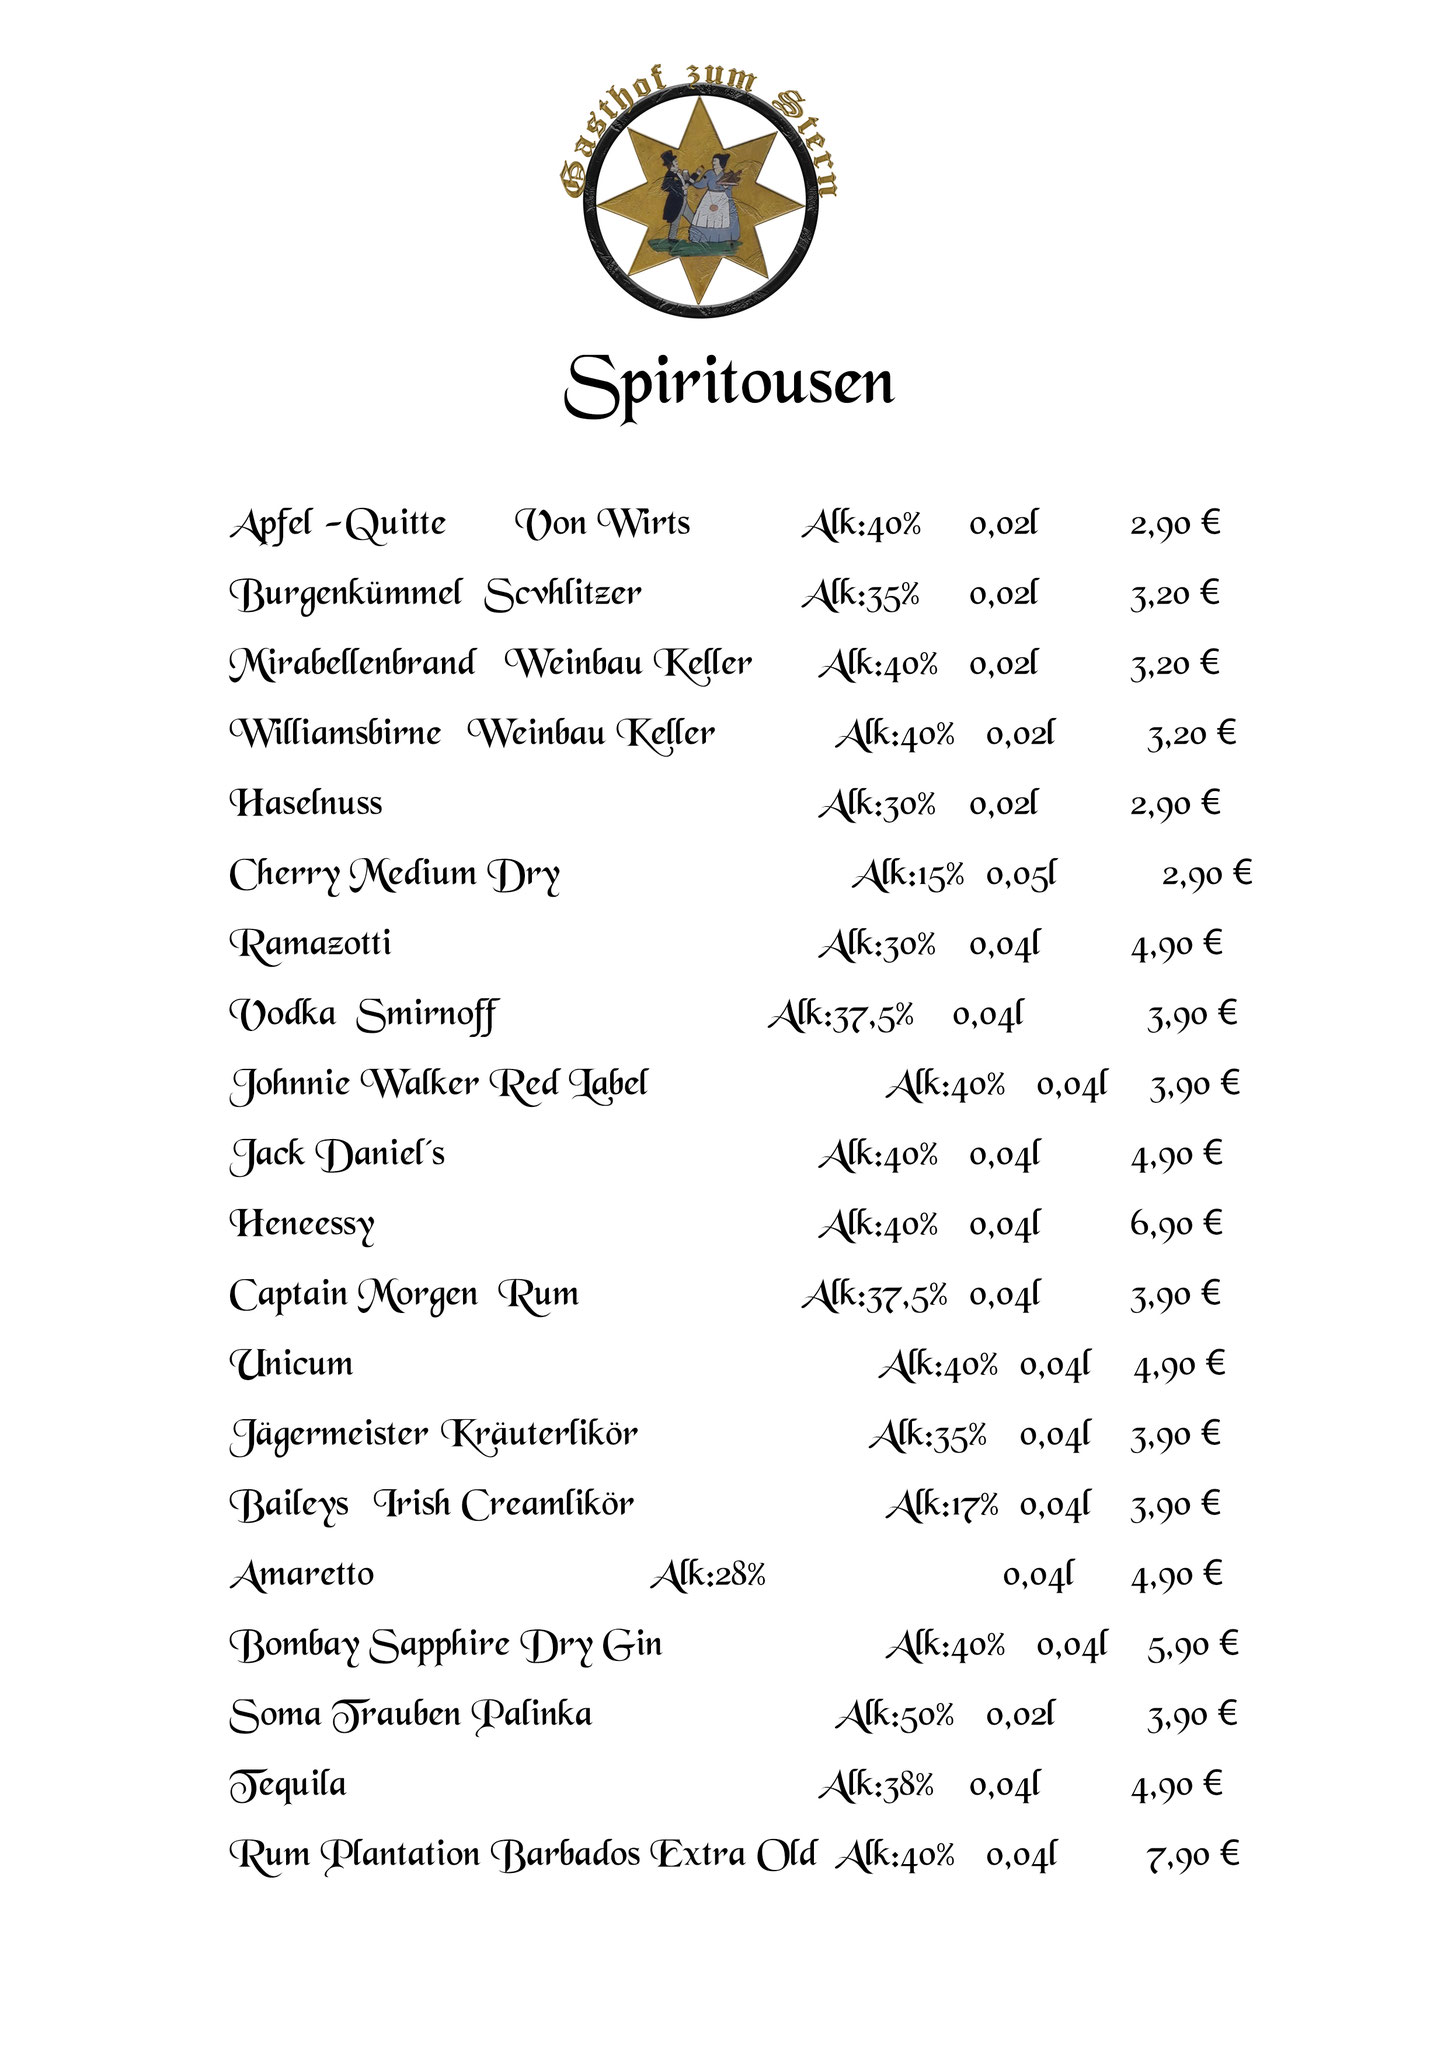 Gasthof zum Stern
Spiritousen
Apfel -Quitte Von Wirts Alk:40% 0,02l 2,90 €
Burgenkümmel Scvhlitzer Alk:35% 0,02l 3,20 €
Mirabellenbrand Weinbau Keller Alk:40% 0,02l 3,20 €
Williamsbirne Weinbau Keller Alk:40% 0,02l 3,20 €
Haselnuss Alk:30% 0,02l 2,90 €
Cherry Medium Dry Alk:15% 0,05l 2,90 €
Ramazotti Alk:30% 0,04l 4,90 €
Vodka Smirnoff Alk:37,5% 0,04l 3,90 €
Johnnie Walker Red Label Alk:40% 0,04l 3,90 €
Jack Daniel´s Alk:40% 0,04l 4,90 €
Heneessy Alk:40% 0,04l 6,90 €
Captain Morgen Rum Alk:37,5% 0,04l 3,90 €
Unicum Alk:40% 0,04l 4,90 €
Jägermeister Kräuterlikör Alk:35% 0,04l 3,90 €
Baileys Irish Creamlikör Alk:17% 0,04l 3,90 €
Amaretto Alk:28% 0,04l 4,90 €
Bombay Sapphire Dry Gin Alk:40% 0,04l 5,90 €
Soma Trauben Palinka Alk:50% 0,02l 3,90 €
Tequila Alk:38% 0,04l 4,90 €
Rum Plantation Barbados Extra Old Alk:40% 0,04l 7,90 €